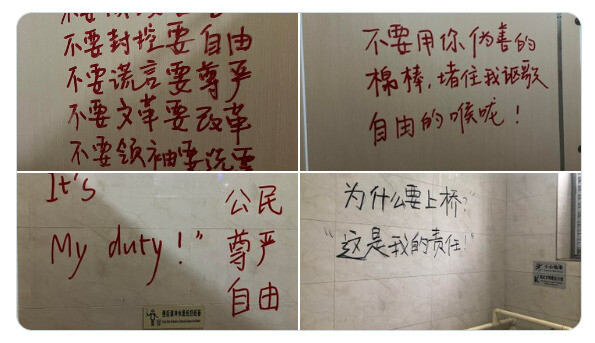 不要封控要自由
不要谎言要尊严
不要文革要改革
不要领袖要选票
不要用你伪善的
棉棒,堵住我讴歌
自由的喉咙!
It's
My duty!"
公民
尊严
自由
为什么要上桥?"
"这是我的责任!"
小心地滑